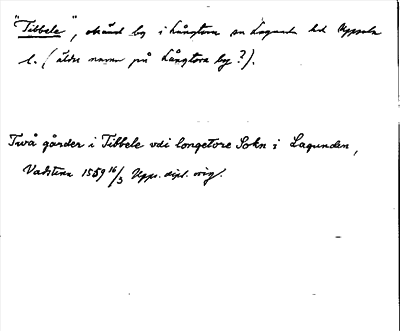 "Tibbele", okänd by i Långtora sn Lagunda hd Uppsala
l. (äldre namn på Långtora by?).
Två gårder i Tibbele vdi longetore Sokn i Lagunden,
Vadstena 1559 16/3 Upps. dipl. orig.